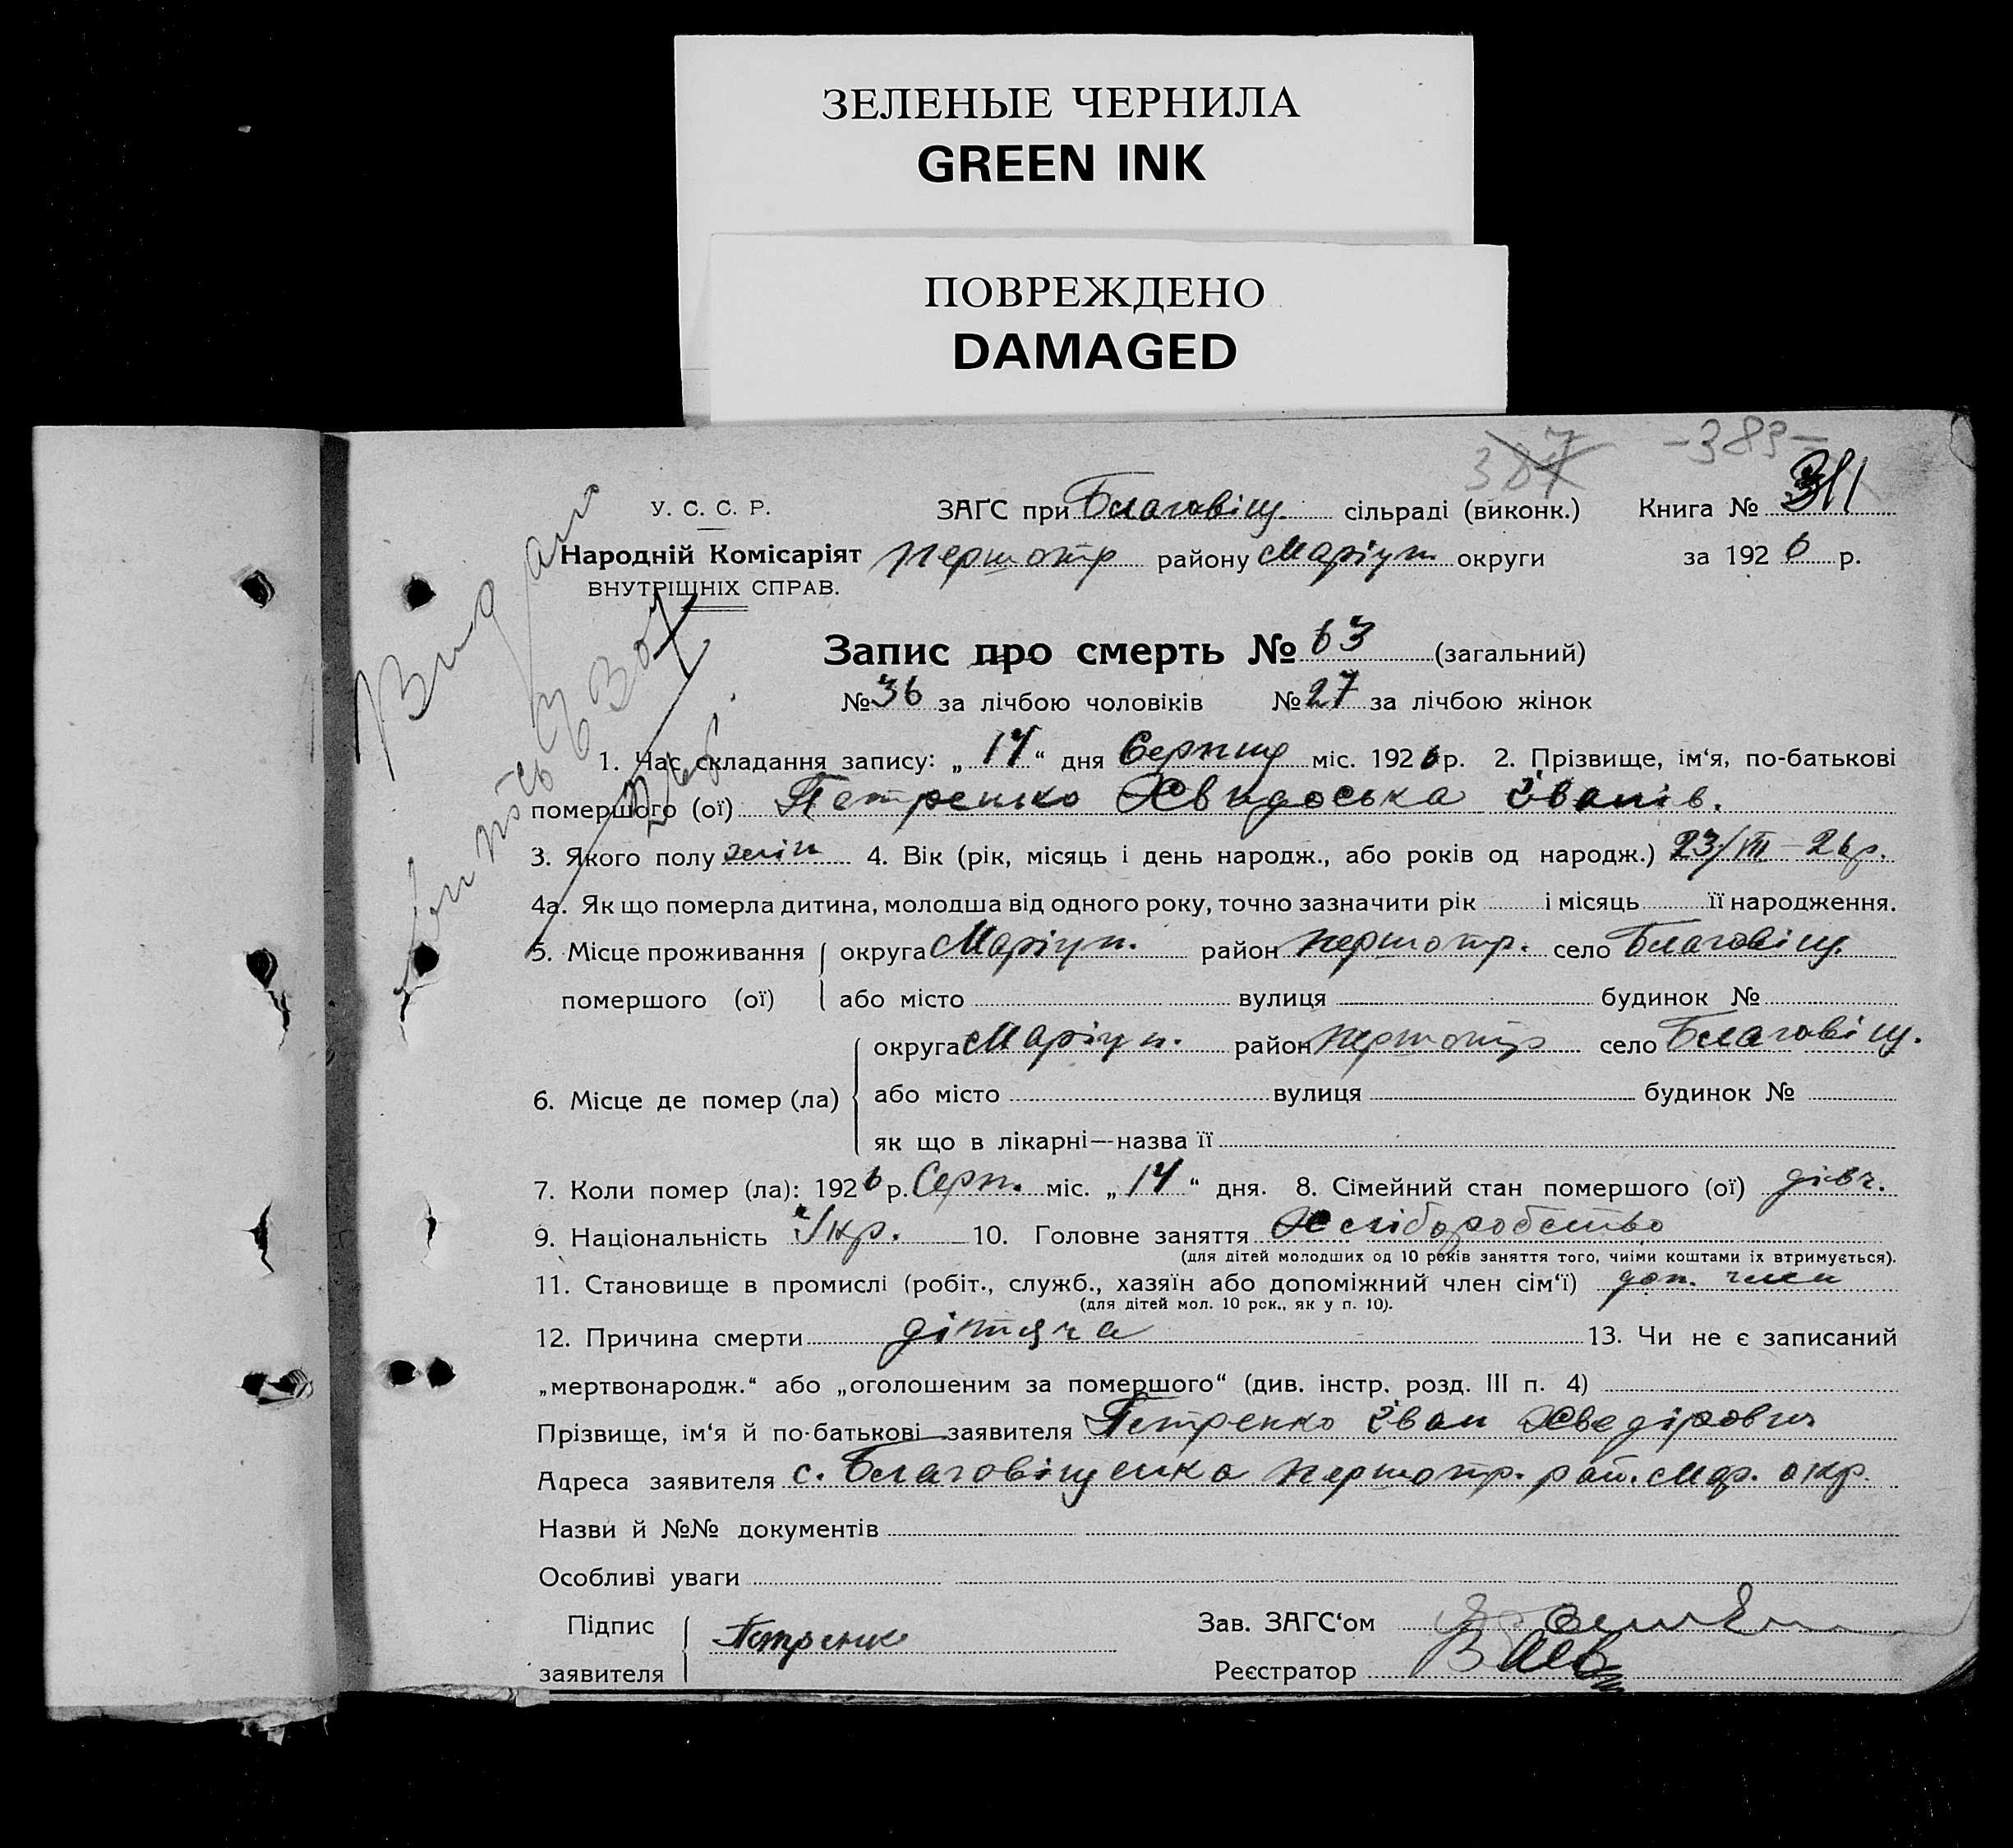 ЗЕЛЕНЫЕ ЧЕРНИЛА
GREEN INK
ПОВРЕЖДЕНО
DAMAGED
387 -389-
У. С. С. Р. ЗАГС при Благовіщ. сільраді (виконк.) Книга №
Народній Комісаріят першотр району Маріуп округи за 1926 р.
ВНУТРІШНІХ СПРАВ.
Запис про смерть № 63 (загальний)
№ 36 за лічбою чоловіків № 27 за лічбою жінок
1. Час складання запису: „17“ дня Серпня міс. 1926 р. 2. Прізвище, ім‘я, по-батькові
помершого (ої) Петренко Хвидоська Іванів.
3. Якого полу жін 4. Вік (рік, місяць і день народж., або років од народж.) 23/VII – 26 р.
4а. Як що померла дитина, молодша від одного року, точно зазначити рік і місяць її народження.
5. Місце проживання округа Маріуп. район першотр. село Благовіщ.
помершого (ої) або місто вулиця будинок №
округа Маріуп. район першотр село Благовіщ.
6. Місце де помер (ла) або місто вулиця будинок №
як що в лікарні—назва її
7. Коли помер (ла): 1926 р. Серп. міс. „14“ дня. 8. Сімейний стан помершого (ої) дівч.
9. Національність Укр. 10. Головне заняття Хліборобство
(для дітей молодших од 10 років заняття того, чиїми коштами їх втримується).
11. Становище в промислі (робіт., служб., хазяїн або допоміжний член сім‘ї) доп. член
(для дітей мол. 10 рок., як у п. 10).
12. Причина смерти дітяча 13. Чи не є записаний
„мертвонародж.“ або „оголошеним за помершого“ (див. інстр. розд. III п. 4)
Прізвище, ім‘я й по-батькові заявителя Петренко Іван Хведірович
Адреса заявителя с. Благовіщенка першотр. рай. Мар. окр.
Назви й №№ документів
Особливі уваги
Підпис Петренко Зав. ЗАГС‘ом
заявителя Реєстратор